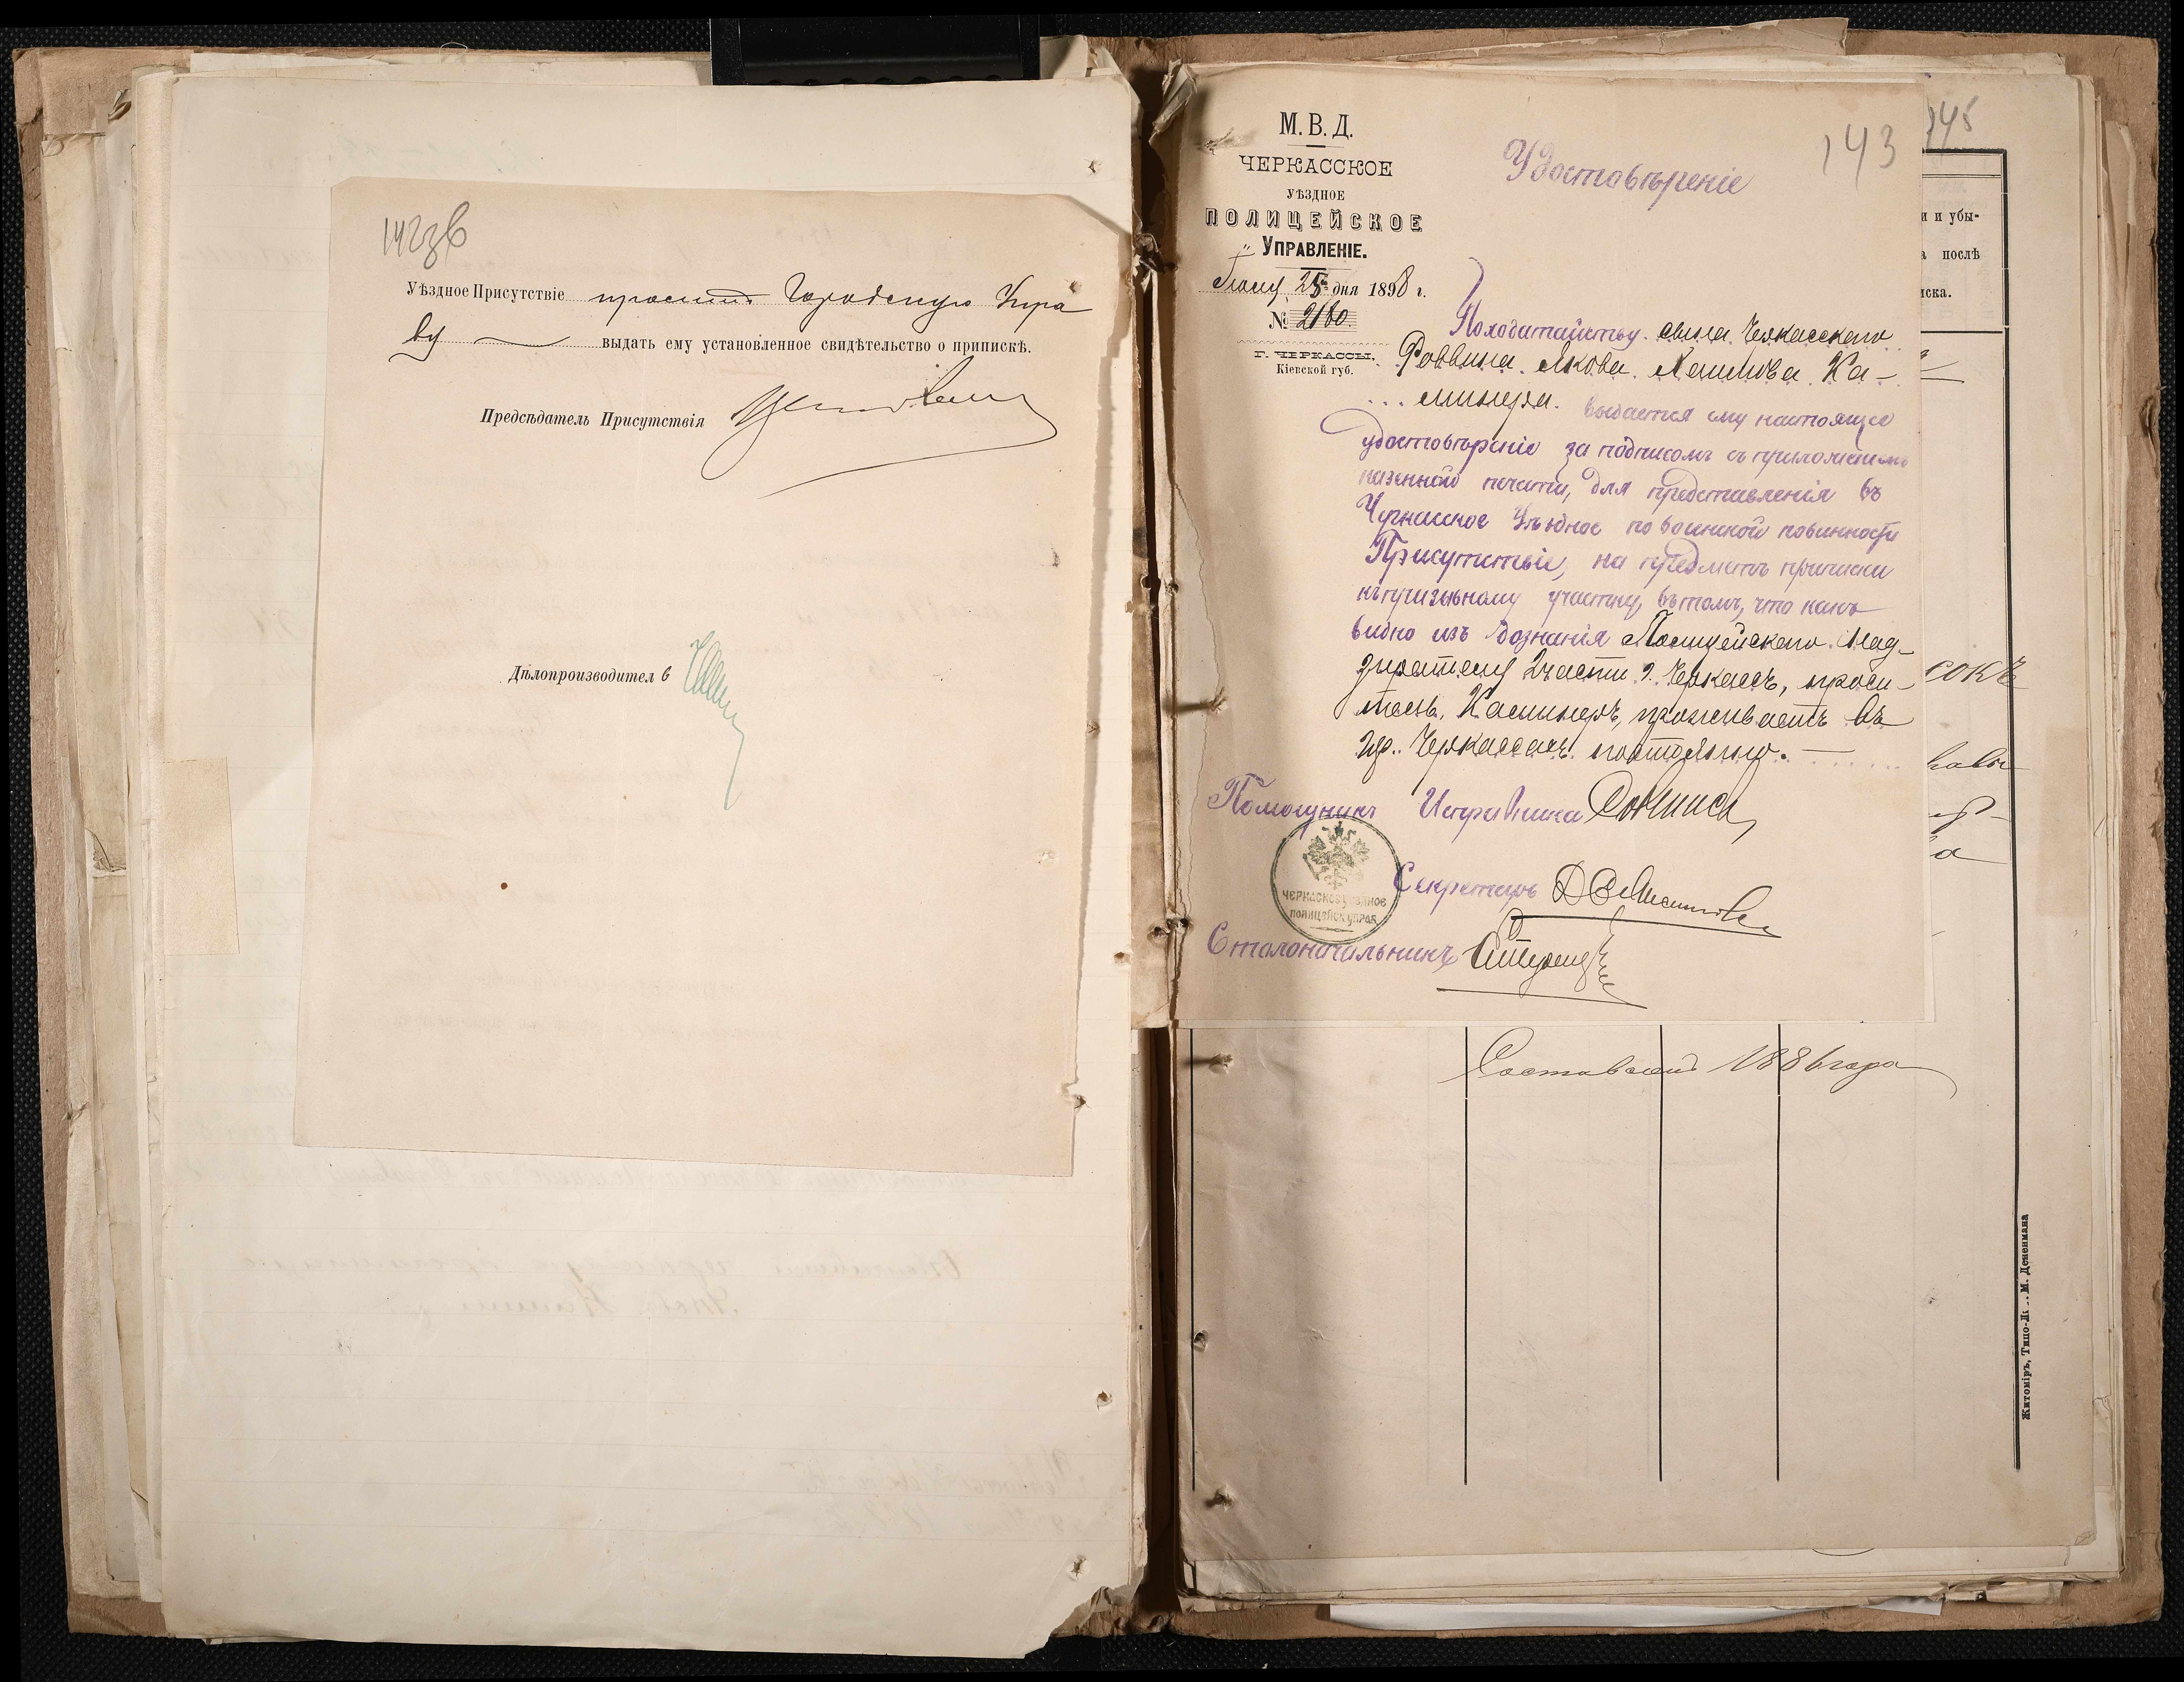 142 зв
Уѣздное Присутствіе проситъ Городскую Упра
ву выдать ему установленное свидѣтельство о припискѣ.
Предсѣдатель Присутствія
Дѣлопроизводител ь
М. В. Д.
ЧЕРКАССКОЕ
УѢЗДНОЕ
ПОЛИЦЕЙСКОЕ
УПРАВЛЕНІЕ.
25 дня 1898 г.
№ 2180.
Г. ЧЕРКАССЫ,
Кіевской губ.
143
Удостовѣреніе
По ходатайству сына Черкасскаго
Раввина Якова Ка-
минера. выдается ему настоящее
удостовѣреніе за подписомъ съ приложеніемъ
казенной печати, для представленія въ
Черкасское Уѣздное по воинской повинности
Присутствіе, на предметъ приписки
къ призывному участку, въ томъ, что какъ
видно изъ дознанія Полицейскаго Над-
зирателя 2 части г. Черкассъ, проси-
тель, Каминеръ, проживаетъ въ
гор. Черкассахъ постоянно.
Помощникъ Исправника
ЧЕРКАСКОЕ УѢЗДНОЕ
ПОЛИЦЕЙСК УПРАВ
Секретарь
Столоначальникъ
145
и и убы-
а послѣ
иска.
сокъ
Составленъ 1886 года
Житоміръ, Типо-Ли . . М. Дененмана